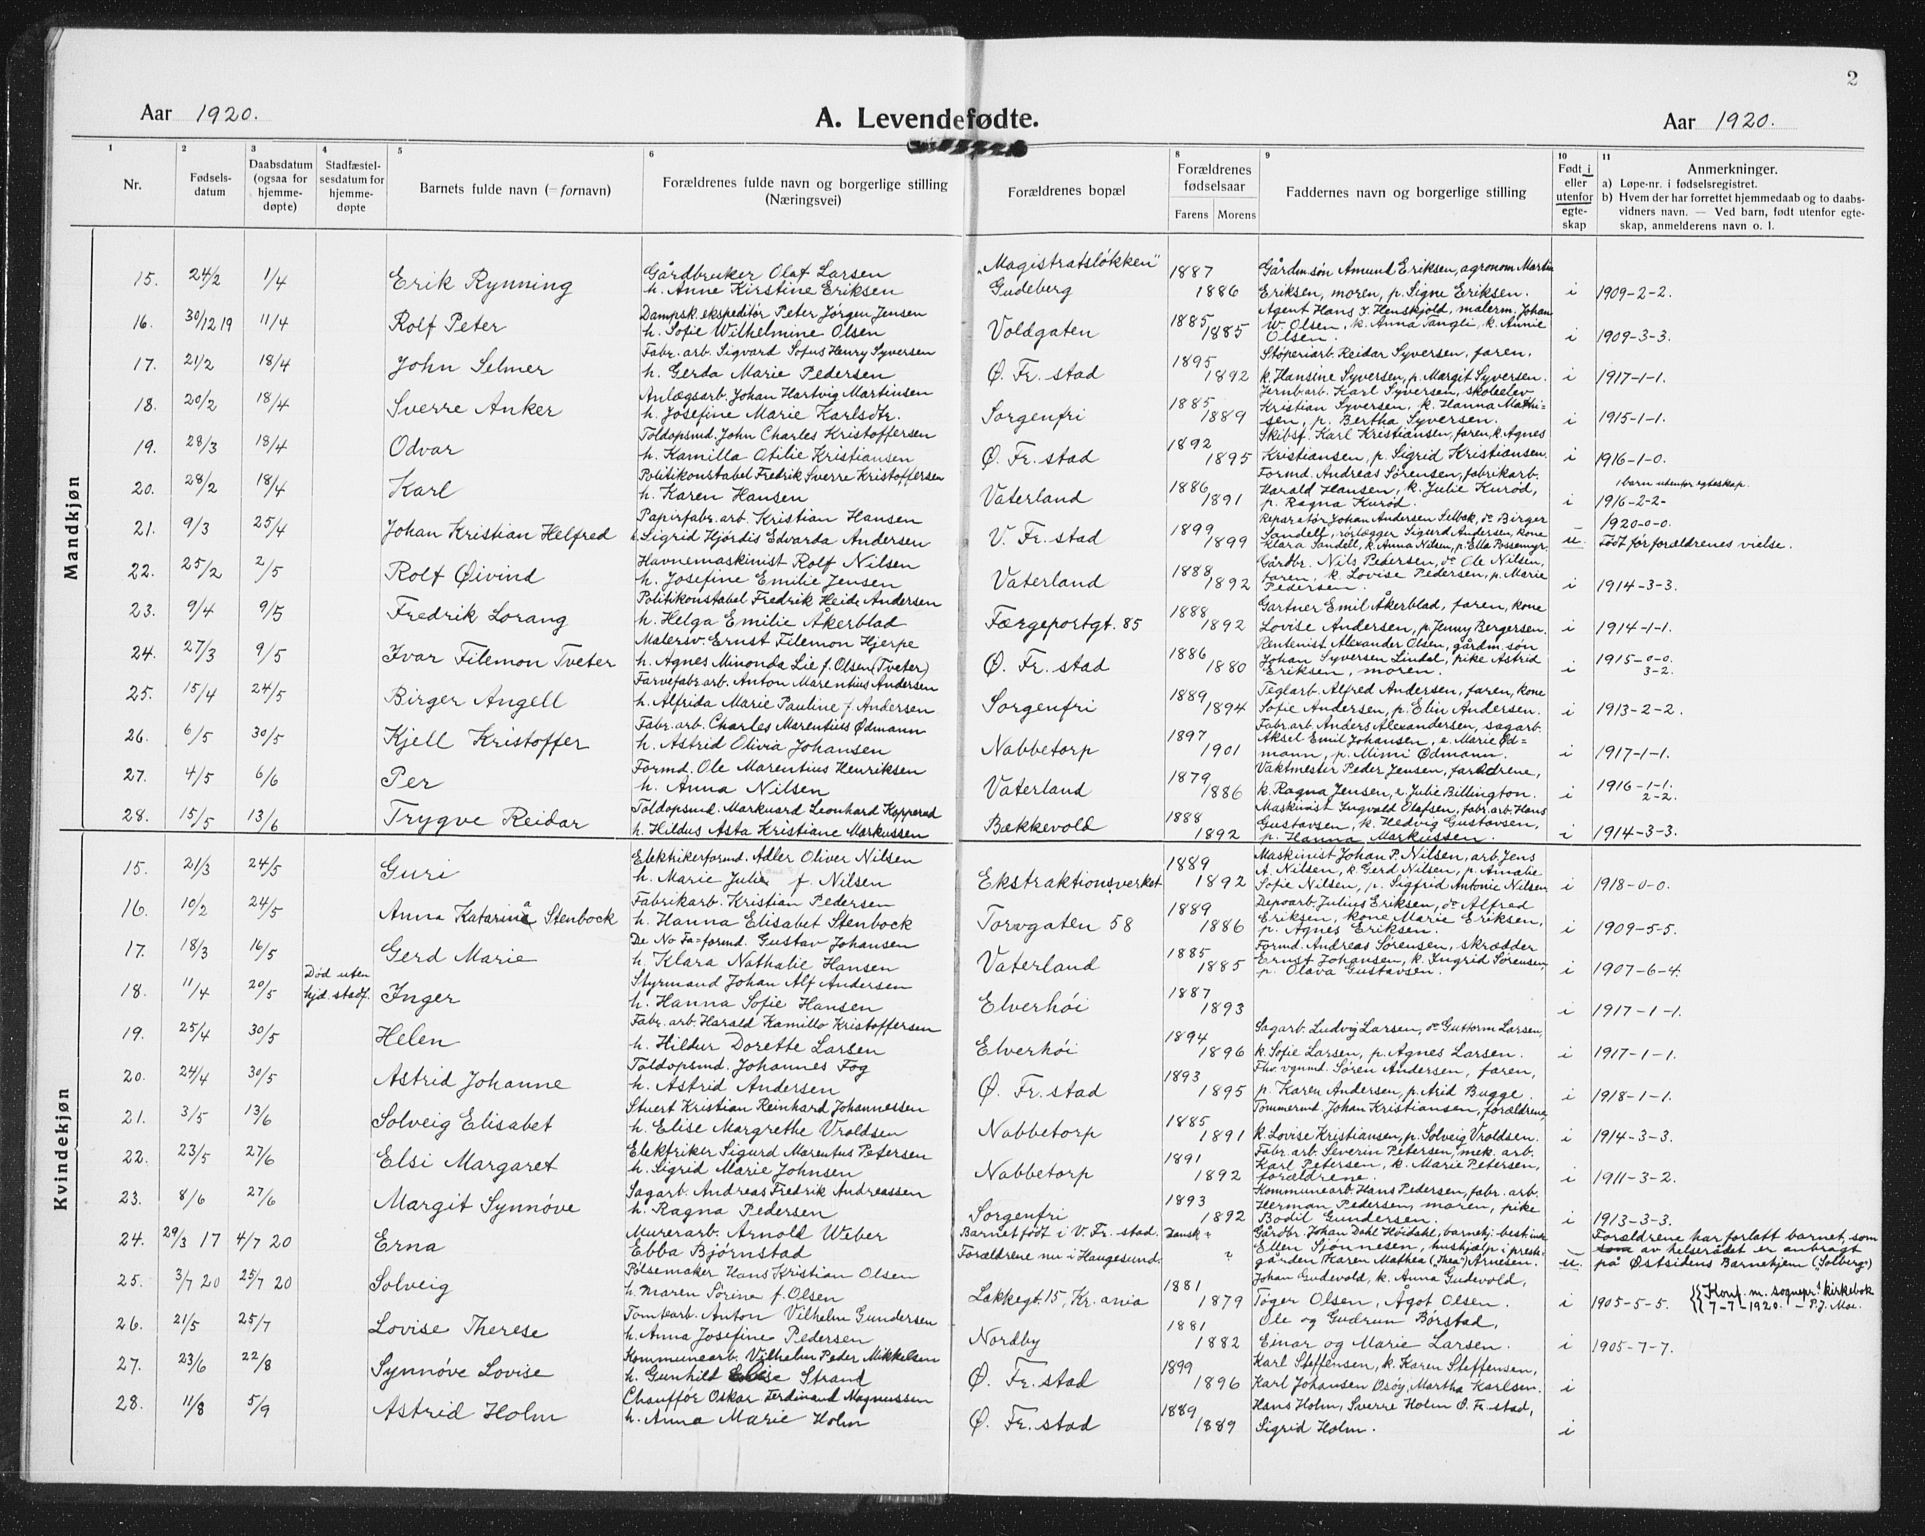 2
Aar 1920.
A. Levendefødte.
Aar 1920.
1
2
3
4
5
6
8
9
10
11
Nr.
Fødsels-
datum
Daabsdatum
(ogsaa for
hjemme-
døpte)
Stadfæstel-
sesdatum for
hjemme-
døpte
Barnets fulde navn (= fornavn)
Forældrenes fulde navn og borgerlige stilling
(Næringsvei)
Forældrenes bopæl
Forældrenes
fødselsaar
Farens Morens
Faddernes navn og borgerlige stilling
Født i
eller
utenfor
egte-
skap
Anmerkninger.
a) Løpe-nr. i fødselsregistret.
b) Hvem der har forrettet hjemmedaab og to daabs-
vidners navn. — Ved barn, født utenfor egte-
skap, anmelderens navn o. l.
Mandkjøn
15. 24/2 1/4 Erik Rynning
Gårdbruker Olaf Larsen
h. Anne Kirstine Eriksen
"Magistratsløkken"
Gudeberg
1887
1886
Gårdm.søn Amund Eriksen, agronom Martin
Eriksen, moren, p. Signe Eriksen.
i 1909-2-2.
16. 30/12 19 11/4 Rolf Peter
Dampsk.ekspeditør Peter Jørgen Jensen
h. Sofie Wilhelmine Olsen
Voldgaten
1885
1885
Agent Hans J. Henskjold, malerm. Johan
W. Olsen, k. Anna Tangli, k. Annie
Olsen.
i 1909-3-3.
17. 21/2 18/4 John Selmer
Fabr. arb. Sigvard Sofus Henry Syversen
h. Gerda Marie Pedersen
Ø. Fr. stad
1895
1892
Støperiarb. Reidar Syversen, faren,
k. Hansine Syversen, p. Margit Syversen.
i 1917-1-1.
18. 20/2 18/4 Sverre Anker
Anlægsarb. Johan Hartvig Martinsen
h. Josefine Marie Karlsdtr.
Sorgenfri
1885
1889
Jernbarb. Karl Syversen, skoleelev
Kristian Syversen, k. Hanna Mathi-
sen, p. Bertha Syversen.
i 1915-1-1.
19. 28/3 18/4 Odvar
Toldopsmd. John Charles Kristoffersen
h. Kamilla Otilie Kristiansen
Ø. Fr. stad
1892
1895
Skibsf. Karl Kristiansen, faren, k. Agnes
Kristiansen, p. Sigrid Kristiansen.
i 1916-1-0.
20. 28/2 18/4 Karl
Politikonstabel Fredrik Sverre Kristoffersen
h. Karen Hansen
Vaterland
1886
1891
Formd. Andreas Sørensen, fabrikarb.
Harald Hansen, k. Julie Kurød,
p. Ragna Kurød.
i 1 barn utenfor egteskap.
1916-2-2-
21. 9/3 25/4 Johan Kristian Helfred
Papirfabr. arb. Kristian Hansen
h. Sigrid Hjørdis Edvarda Andersen
V. Fr. stad
1899
1899
Reparatør Johan Andersen Selbak, do Birger
Sandell, rørlægger Sigurd Andersen, kone
Klara Sandell, k. Anna Nilsen, p. Ella Possemyr.
u. 1920-0-0.
Født før forældrenes vielse.
22. 25/2 2/5 Rolf Øivind
Havnemaskinist Rolf Nilsen
h. Josefine Emilie Jensen
Vaterland
1888
1892
Gårdbr. Nils Pedersen, do Ole Nilsen,
faren, k. Lovise Pedersen, p. Marie
Pedersen.
i 1914-3-3.
23. 9/4 9/5 Fredrik Lorang
Politikonstabel Fredrik Heide Andersen
h. Helga Emilie Åkerblad
Færgeportgt. 85
1888
1892
Gartner Emil Åkerblad, faren, kone
Lovise Andersen, p. Jenny Bergersen.
i 1914-1-1.
24. 27/3 9/5 Ivar Filemon Tveter
Malersv. Ernst Filemon Hjerpe
h. Agnes Minonda Lie f. Olsen (Tveter)
Ø. Fr. stad
1886
1880
Rentenist Alexander Olsen, gårdm. søn
Johan Syversen Lindel, pike Astrid
Eriksen, moren.
i 1915-0-0.
3-2.
25. 15/4 24/5 Birger Angell
Farvefabr arb. Anton Marentius Andersen
h. Alfrida Marie Pauline f. Andersen
Sorgenfri
1889
1894
Teglarb. Alfred Andersen, faren, kone
Sofie Andersen, p. Elin Andersen.
i 1913-2-2.
26. 6/5 30/5 Kjell Kristoffer
Fabr. arb. Charles Marentius Ødmann
h. Astrid Olivia Johansen
Nabbetorp
1897
1901
Fabr. arb. Anders Alexandersen, sagarb.
Aksel Emil Johansen, e. Marie Ød=
mann, p. Mimi Ødmann.
i 1917-1-1.
27. 4/5 6/6 Per
Formd. Ole Marentius Henriksen
h. Anna Nilsen
Vaterland
1879
1886
Vaktmester Peder Jensen, forældrene,
k. Ragna Jensen, e. Julie Billington.
i 1916-1-1.
2-2.
28. 15/5 13/6 Trygve Reidar
Toldopsmd. Markuard Leonhard Kopperud
h. Hildus Asta Kristiane Markussen
Bækkevold
1888
1892
Maskinist Ingvald Olafsen, fabr. arb. Hans
Gustavsen, k. Hedvig Gustavsen,
p. Hanna Markussen.
i 1914-3-3.
Kvindekjøn
15. 21/3 24/5 Guri
Elektrikerformd. Adler Oliver Nilsen
h. Marie Julie f. Nilsen
Ekstraktionsverket
1889
1892
Maskinist Johan P. Nilsen, arb. Jens
A. Nilsen, k. Gerd Nilsen, p. Amalie
Sofie Nilsen, p. Sigfrid Antonie Nilsen
i 1918-0-0.
16. 10/2 24/5 Anna Katarina Stenbock
Fabrikarb. Kristian Pedersen
h. Hanna Elisabet Stenbock
Torvgaten 58
1889
1886
Depoarb. Julius Eriksen, do Alfred
Eriksen, kone Marie Eriksen,
p. Agnes Eriksen.
i 1909-5-5.
17. 18/3 16/5 Gerd Marie
De No Fa=formd. Gustav Johansen
h. Klara Nathalie Hansen
Vaterland
1885
1885
Formd. Andreas Sørensen, skrædder
Ernst Johansen, k. Ingrid Sørensen,
p. Olava Gustavsen.
i 1907-6-4.
18. 11/4 20/5 Død uten
hjd. stadf. Inger
Styrmand Johan Alf Andersen
h. Hanna Sofie Hansen
Elverhöi
1887
1893
i 1917-1-1.
19. 25/4 30/5 Helen
Fabr. arb. Harald Kamillo Kristoffersen
h. Hildur Dorette Larsen
Elverhöi
1894
1896
Sagarb. Ludvig Larsen, do Guttorm Larsen,
k. Sofie Larsen, p. Agnes Larsen.
i 1917-1-1.
20. 24/4 30/5 Astrid Johanne
Toldopsmd. Johannes Fog
h. Astrid Andersen
Ø. Fr. stad
1893
1895
Fhv. vgnmd. Søren Andersen, faren,
p. Karen Andersen, p. Arid Bugge.
i 1918-1-1.
21. 3/5 13/6 Solveig Elisabet
Stuert Kristian Reinhard Johannessen
h. Elise Margrethe Vroldsen
Nabbetorp
1885
1891
Tømmermd Johan Kristiansen, forældrene,
k. Lovise Kristiansen, p. Solveig Vroldsen.
i 1914-3-3.
22. 23/5 27/6 Elsi Margaret
Elektriker Sigurd Marentus Petersen
h. Sigrid Marie Johnsen
Nabbetorp
1891
1892
Fabr. arb. Severin Petersen, mek. arb.
Karl Petersen, k. Marie Petersen,
forældrene.
i 1911-3-2.
23. 8/6 27/6 Margit Synnøve
Sagarb. Andreas Fredrik Andreassen
h. Ragna Pedersen
Sorgenfri
1893
1892
Kommunearb. Hans Pedersen, fabr. arb.
Herman Pedersen, moren, pike
Bodil Gundersen.
i 1913-3-3.
24. 29/3 17 4/7 20 Erna
Murerarb. Arnold Weber
Ebba Bjørnstad
Barnet født i V. Fr. stad.
Forældrene nu i Haugesund.
Dansk
Gårdbr. Johan Dahl Höidahl, barnehj. best.inde
Ellen Sjönnesen, hushjælp i preste-
gården Karen Mathea ("Thea") Arnesen.
u. Forældrene har forlatt barnet, som
av helserådet er anbragt
på Østsidens Barnehjem ("Solberg")
25. 3/7 20 25/7 20 Solveig
Pølsemaker Hans Kristian Olsen
h. Maren Sorine f. Olsen
Lakkegt. 15, Kr.ania
1881
1879
Johan Gudevold, k. Anna Gudevold,
Töger Olsen, Agot Olsen.
i 1905-5-5. {{Konf. m. sognepr.s kirkebok
7-7-1920. — P. J. Moe.
26. 21/5 25/7 Lovise Therese
Tomtearb. Anton Vilhelm Gundersen
h. Anna Josefine Pedersen
Nordby
1881
1882
Ole og Gudrun Börstad,
Einar og Marie Larsen.
i 1905-7-7.
27. 23/6 22/8 Synnøve Lovise
Kommunearb. Vilhelm Peder Mikkelsen
h. Gunhild Elise Strand
Ø. Fr. stad
1899
1896
Karl Steffensen, k. Karen Steffensen,
Karl Johansen Osöy, Martha Karlsen.
i
28. 11/8 5/9 Astrid Holm
Chauffør Oskar Ferdinand Magnussen
h. Anna Marie Holm
Ø. Fr. stad
1889
1889
Hans Holm, Sverre Holm Ø. Fr. stad,
Sigrid Holm.
i